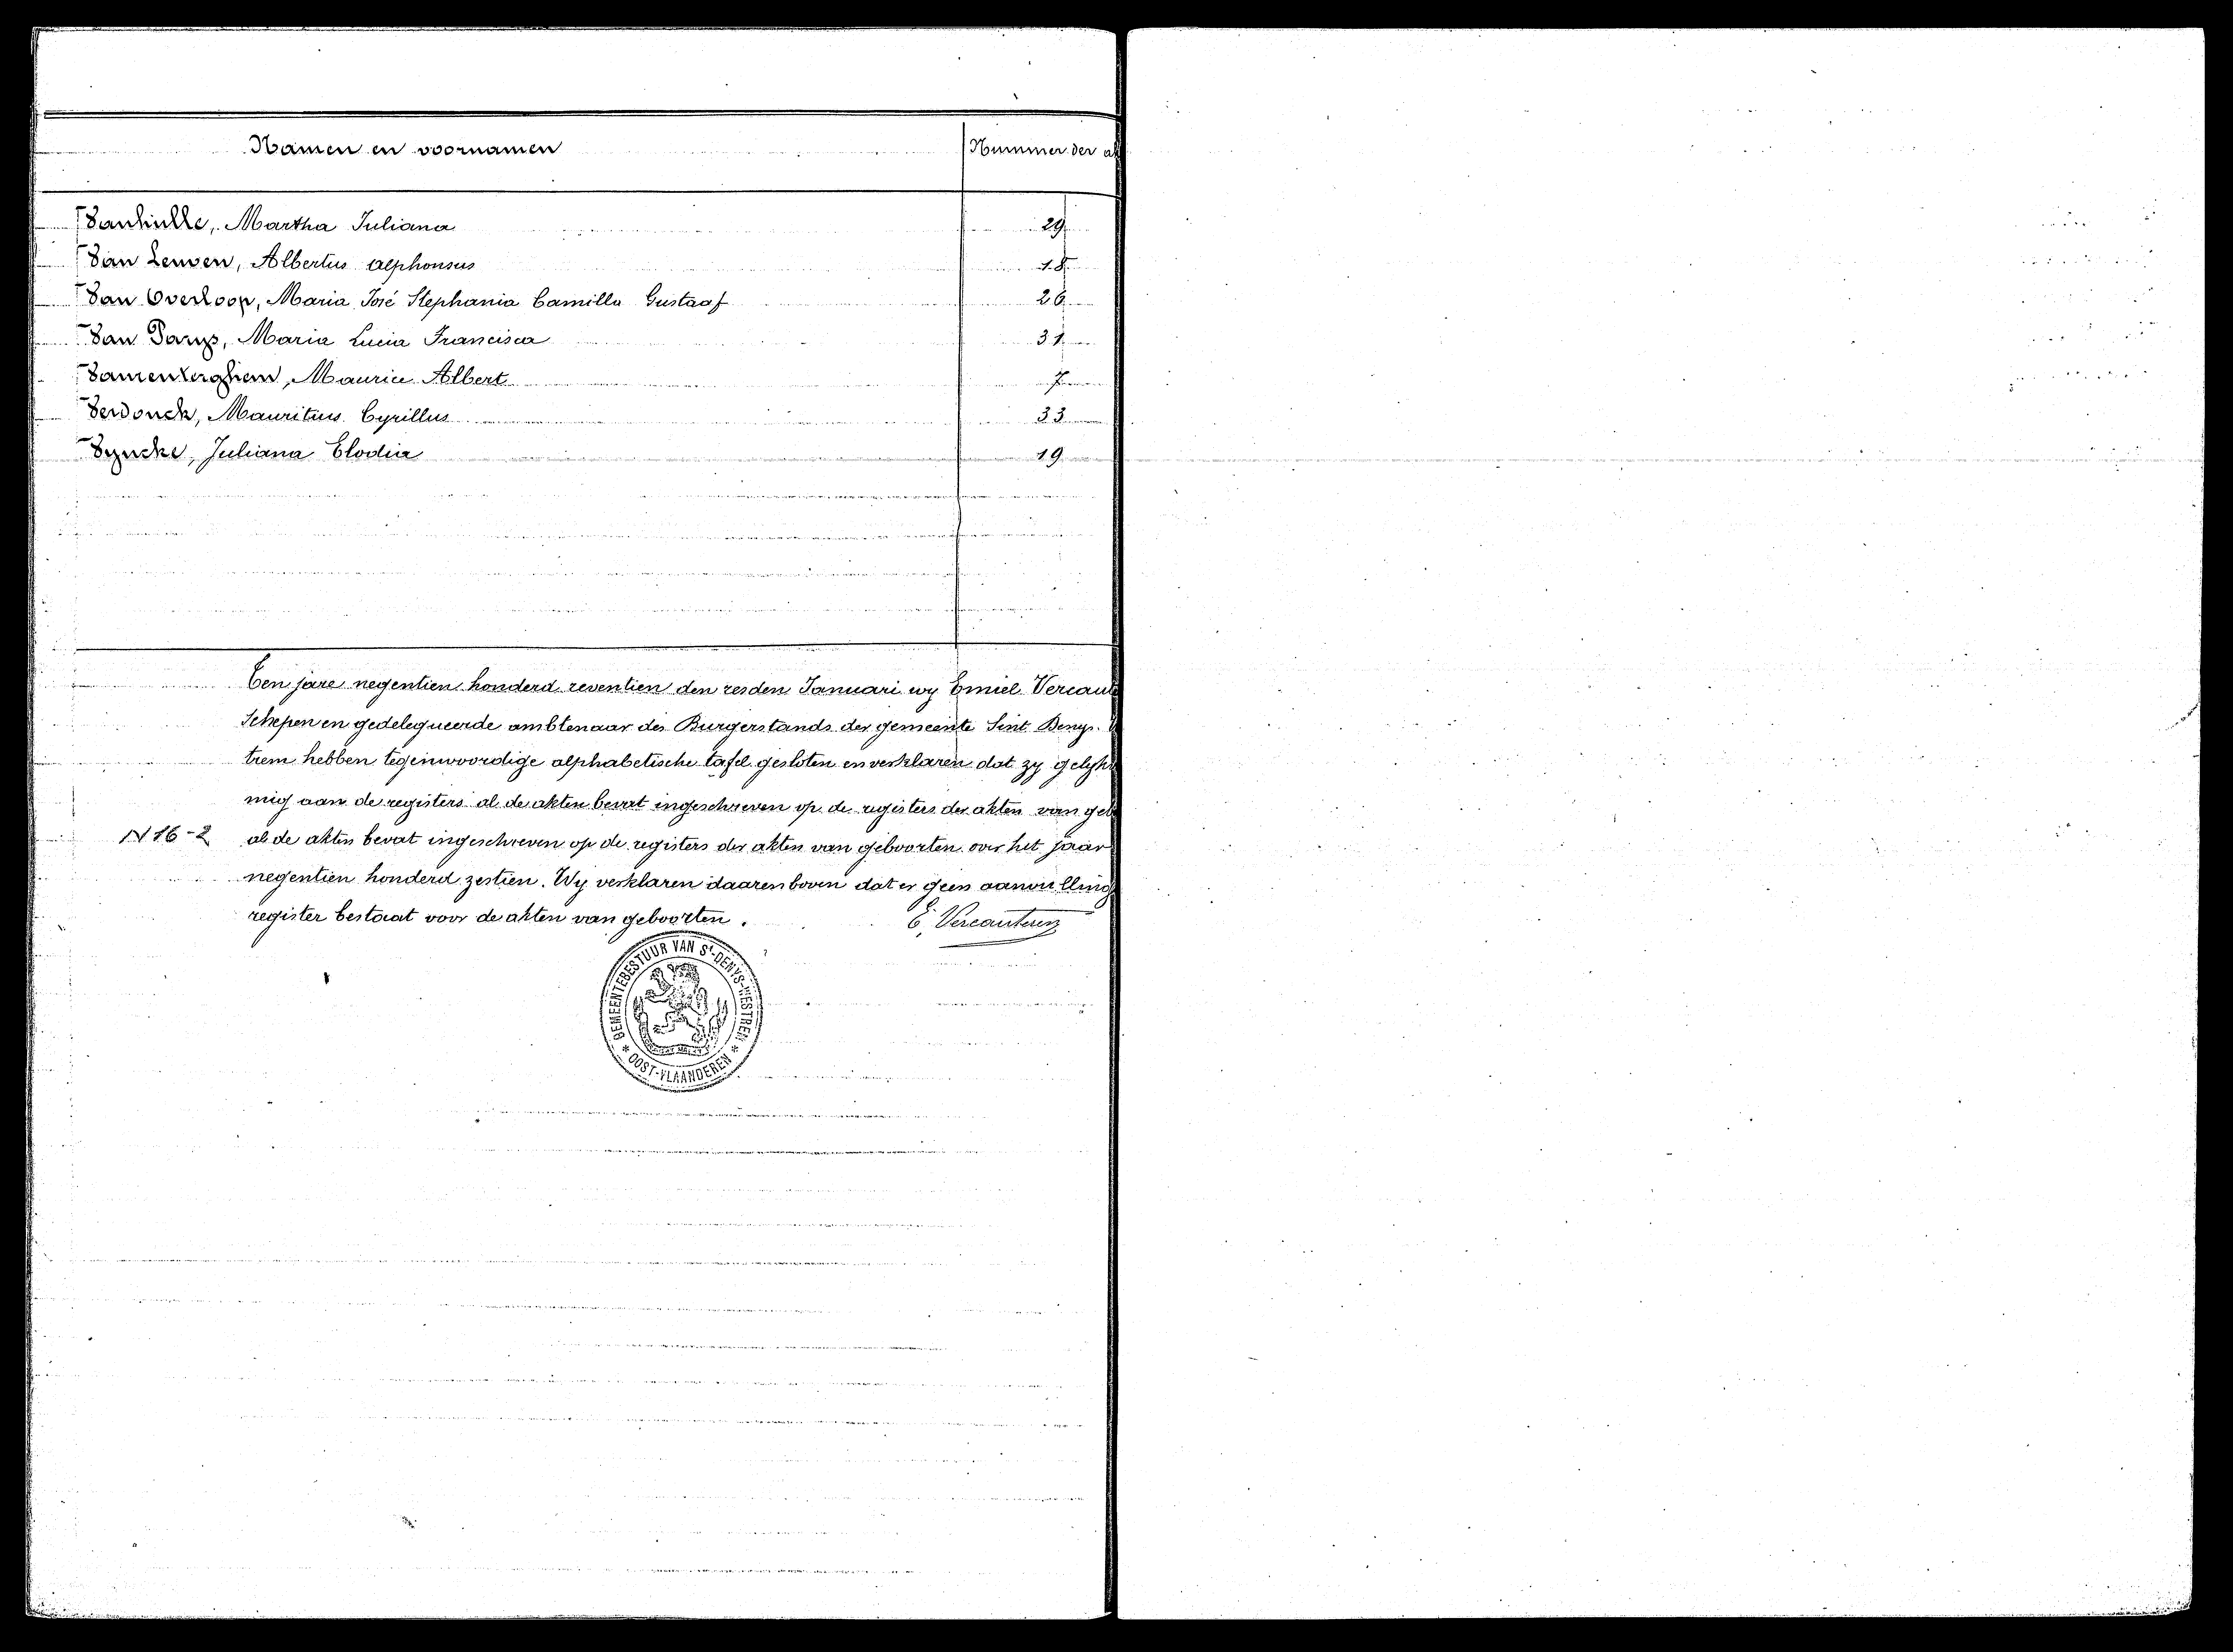 Namen en voornamen Nummer der ak
Vanhulle, Martha Juliana 29
Van Leuven, Albertus Alphonsus 18
Van Overloop, Maria José Stephania Camilla Gustaaf 26
Van Parys, Maria Lucia Francisca 31
Vanrenterghem, Maurice Albert
Verdonck, Mauritius Cyrillus 33
Vyncke, Juliana Elodia 19
Ten jare negentien honderd zeventien den zesden Januari wy Emiel Vercaut
Schepen en gedelegueerde ambtenaar des Burgerstands der gemeente Sint Denys
trem hebben tegenwoordige alphabetische tafel gesloten en verklaren dat zy gelykv
mig aan de registers al de akten bevat ingeschreven op de registers der akten van geb
N 16-2 al de akten bevat ingeschreven op de registers der akten van geboorten over het jaar
negentien honderd zestien. Wy verklaren daarenboven dat er geen aanvulling
register bestaat voor de akten van geboorten. E. Vercauteren
GEMEENTEBESTUUR VAN St-DENYS-WESTREM
* OOST-VLAANDEREN *